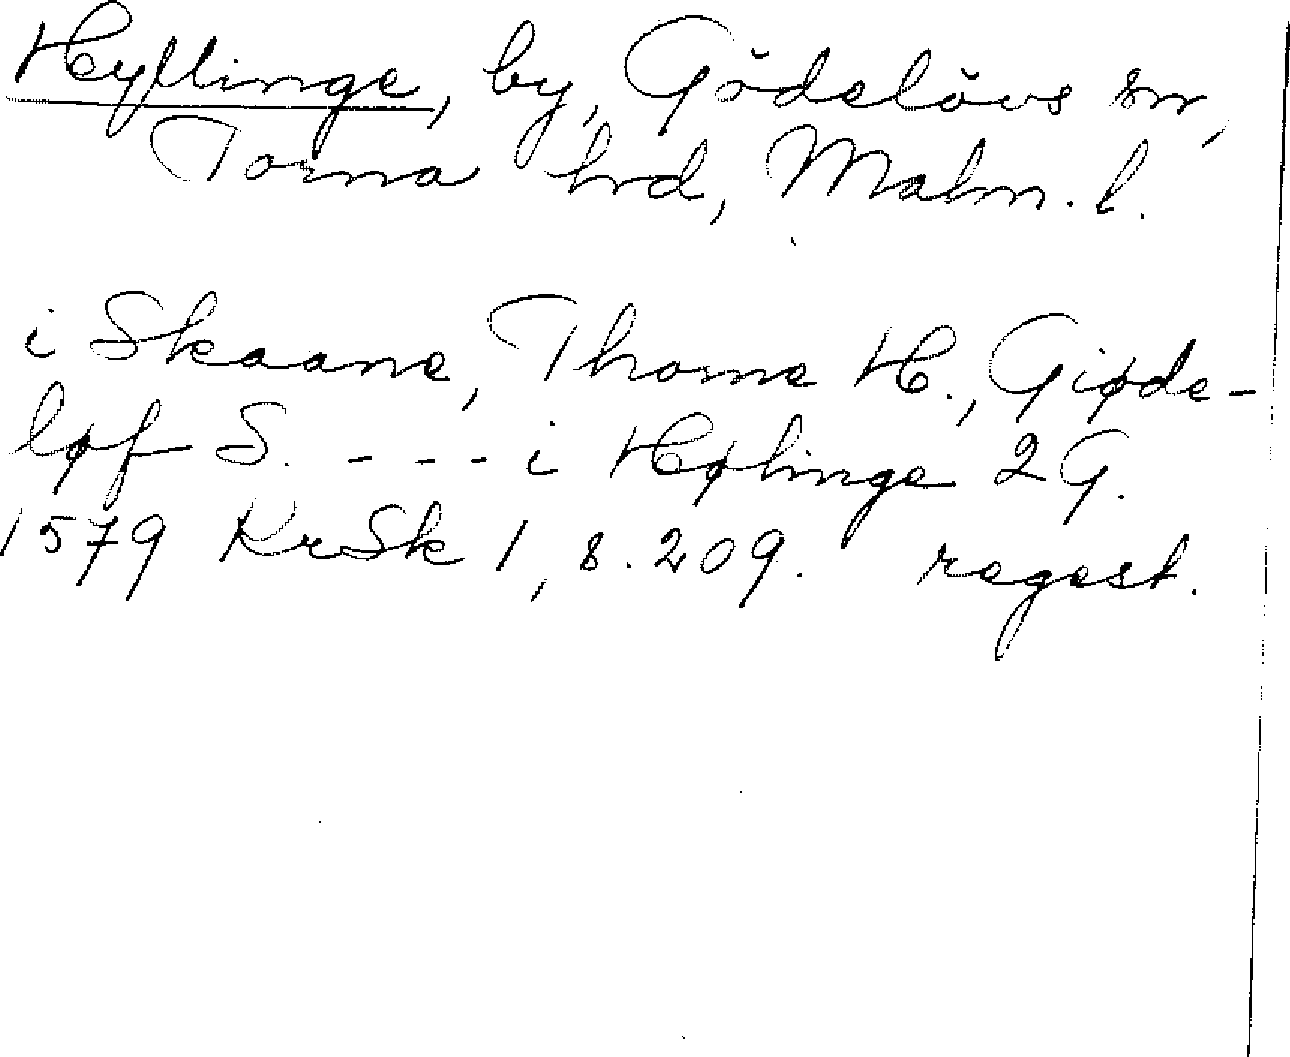 Hyllinge, by, Gödelövs sn,
Torna hrd, Malm. l.
i Skaane, Thorne H., Giøde-
løf S. - - - i Hølinge 2 G.
1579 KrSk 1, s. 209. regest.